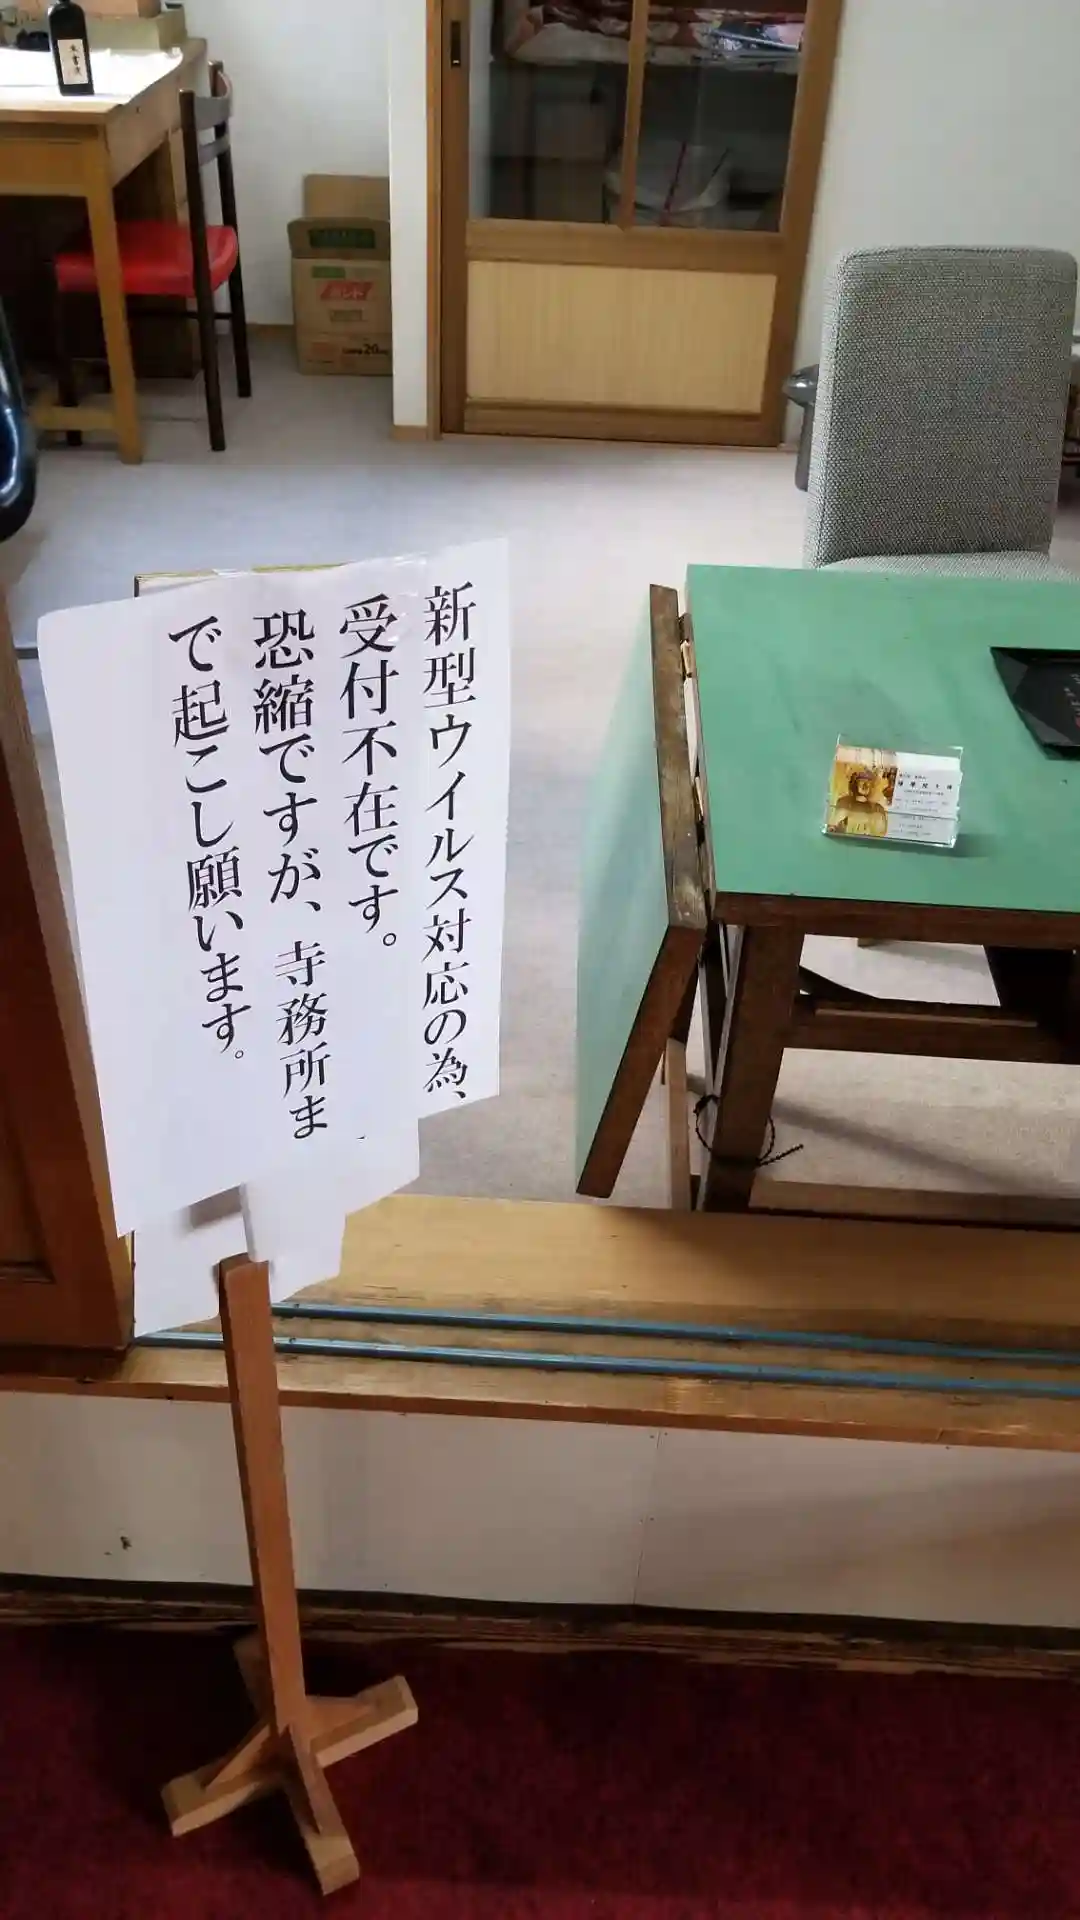 新型ウイルス対応の為、
受付不在です。
恐縮ですが、寺務所ま
で起こし願います。
20